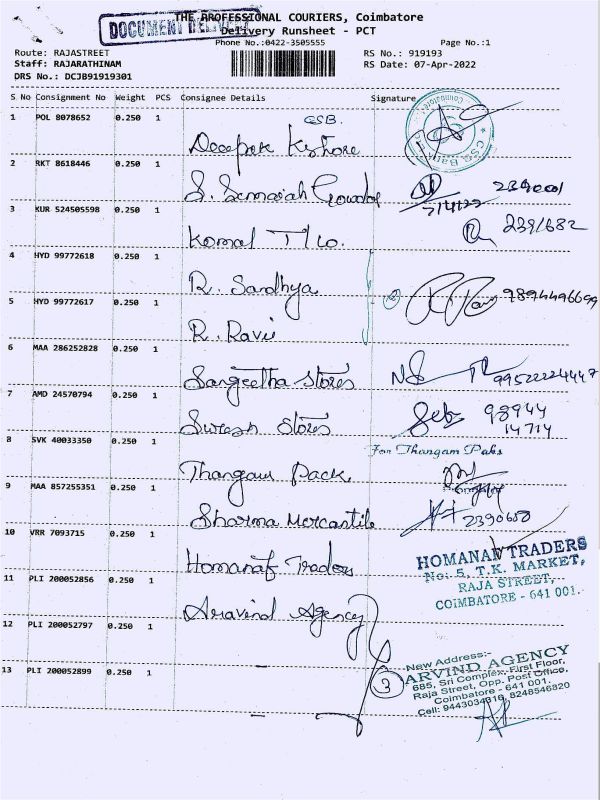 THE PROFESSIONAL COURIERS, Coimbatore
DOCUMENT DELIVERY
Delivery Runsheet - PCT
Phone No.:0422-3505555
Page No.:1
Route: RAJASTREET
RS No.: 919193
Staff: RAJARATHINAM
RS Date: 07-Apr-2022
DRS No.: DCJB91919301
S No Consignment No Weight PCS Consignee Details Signature
1 POL 8078652 0.250 1
CSB.
Deepak Kishore
2 RKT 8618446 0.250 1
S. Sennaiah Gowder 2390001
7/4/22
3 KUR 524505598 0.250 1
Komal T/Co. 2391682
4 HYD 99772618 0.250 1
R. Sandhya 9894496699
5 HYD 99772617 0.250 1
R. Ravi
6 MAA 286252828 0.250 1
Sangeetha Stores 99522224447
7 AMD 24570794 0.250 1
Suresh Stores 98944
14714
8 SVK 40033350 0.250 1
For Thangam Paks
Thangam Pack
9 MAA 857255351 0.250 1
Sharma Mercantile 2390688
10 VRR 7093715 0.250 1
Homanaf Traders
HOMANAN TRADERS
No: 5, T.K. MARKET,
RAJA STREET,
COIMBATORE - 641 001.
11 PLI 200052856 0.250 1
Aravind Agency
12 PLI 200052797 0.250 1
13 PLI 200052899 0.250 1
3
New Address:-
ARVIND AGENCY
685, Sri Complex, First Floor,
Raja Street, Opp. Post Office,
Coimbatore - 641 001.
Cell: 9443034816, 8248546820